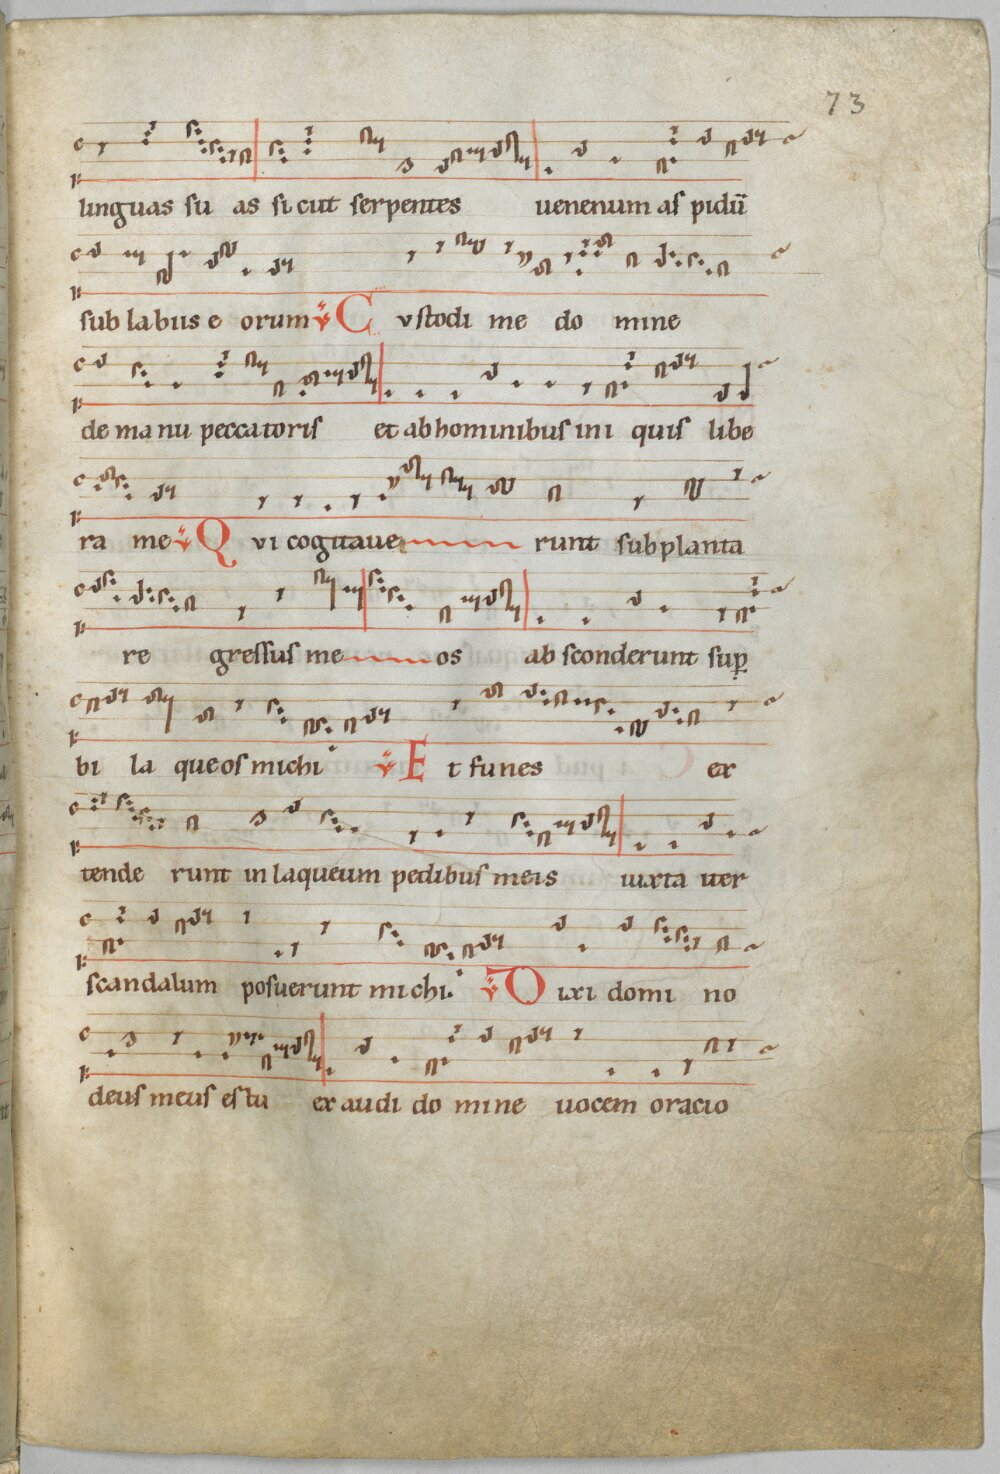 73
linguas su as sicut serpentes uenenum aspidū
sub labiis e orum ℣ Custodi me do mine
de manu peccatoris et ab hominibus ini quis libe
ra me ℣ Qvi cogitaue runt subplanta
re gressus me os absconderunt sup̄
bi la queos michi ℣ Et funes ex
tende runt in laqueum pedibus meis iuxta iter
scandalum posuerunt michi. ℣ Dixi domi no
deus meus es tu exaudi do mine uocem oracio